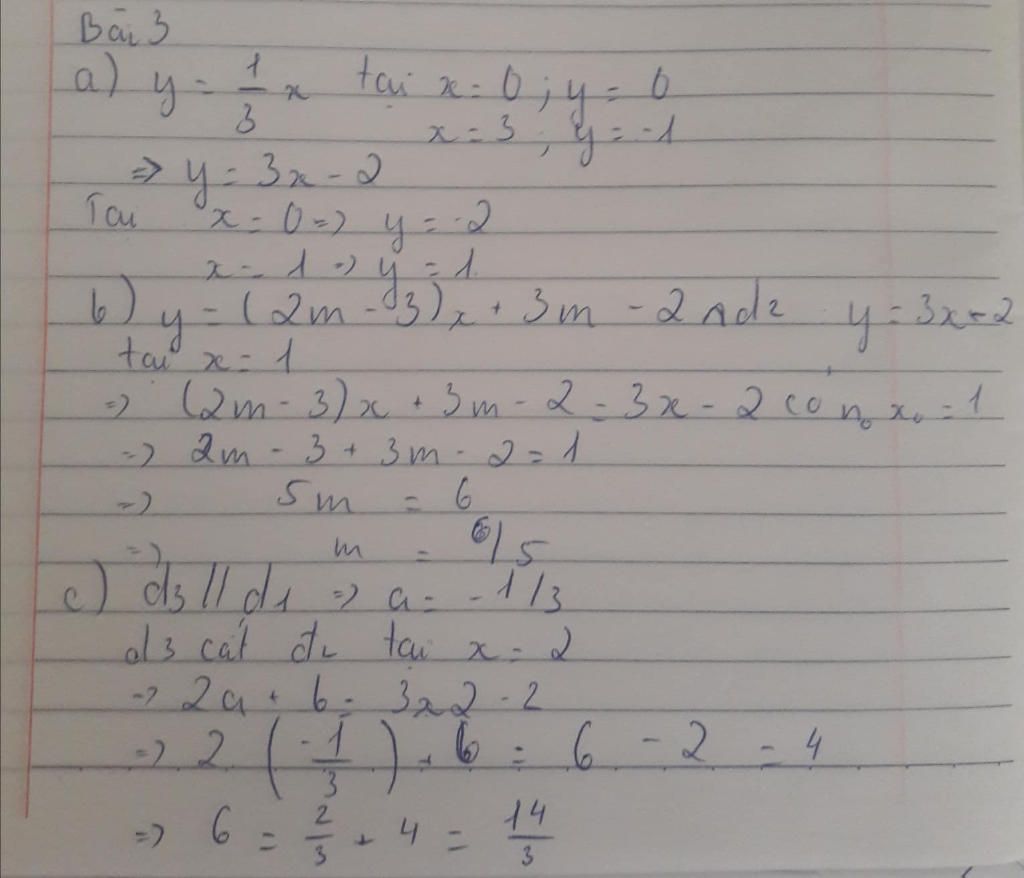 Bài 3
a) y = 1/3 x tại x = 0 ; y = 0
x = 3 ; y = -1
=> y = 3x - 2
Tại x = 0 => y = -2
x = 1 => y = 1.
b) y = (2m - 3)x + 3m - 2 ∩ d2 y = 3x - 2
tại x = 1
=> (2m - 3)x + 3m - 2 = 3x - 2 có n₀ x₀ = 1
=> 2m - 3 + 3m - 2 = 1
=> 5m = 6
=> m = 6/5
c) d3 // d1 => a = -1/3
d3 cắt d2 tại x = 2
=> 2a + b = 3x2 - 2
=> 2 (-1/3) + b = 6 - 2 = 4
=> b = 2/3 + 4 = 14/3